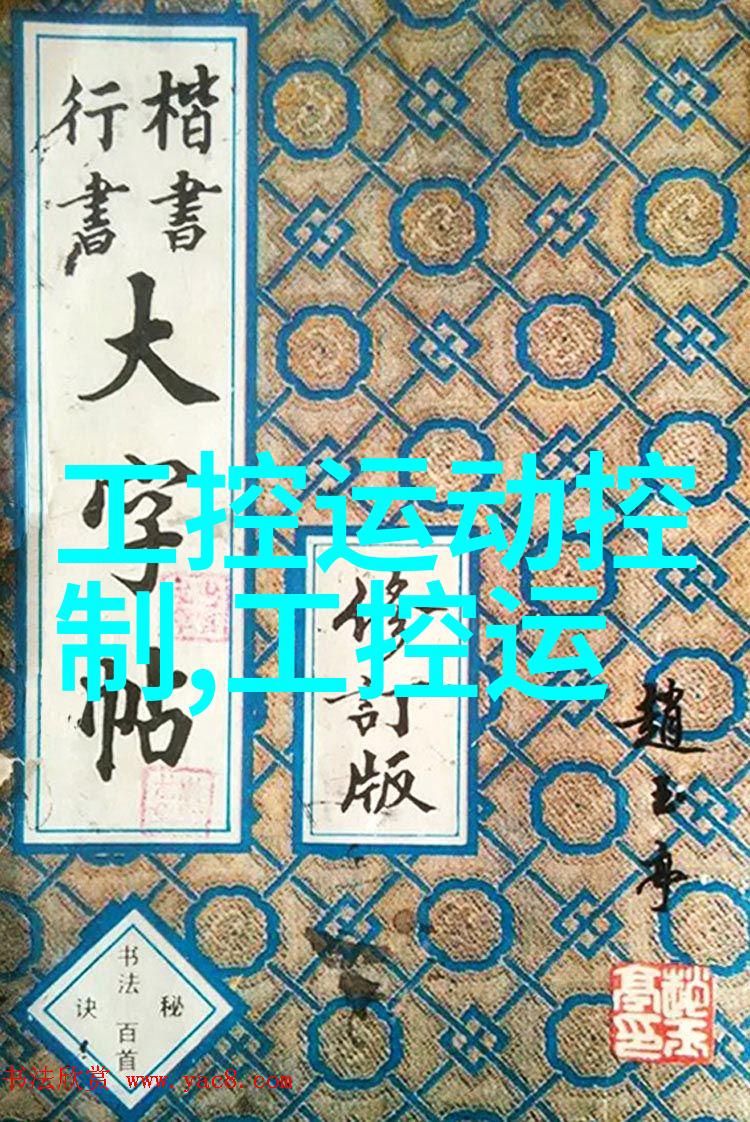 楷書
行書
大字帖
修訂版
趙玉亭
书法
百首
秘
诀
工控运动控
制,工控运
书法欣赏 www.yac8.com